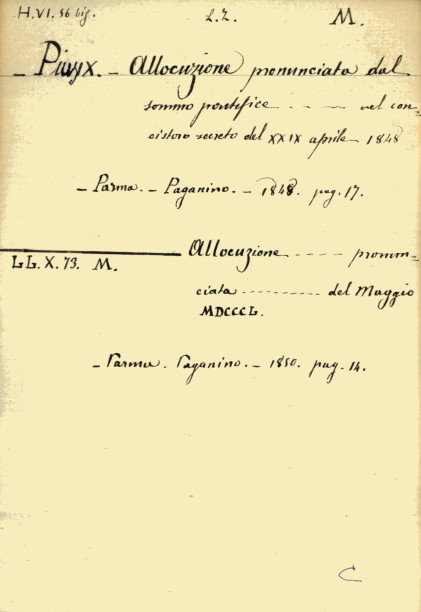 H.VI.56 bis. L.Z. M.
_ Pius IX. _ Allocuzione pronunciata dal
sommo pontefice - - - - - nel con=
cistoro secreto del XXIX aprile 1848
_ Parma. _ Paganino. _ 1848. pag. 17.
Allocuzione - - - - - pronun=
LL.X.73. M.
ciata - - - - - - - del Maggio
MDCCCL.
_ Parma. Paganino. _ 1850. pag. 14.
C